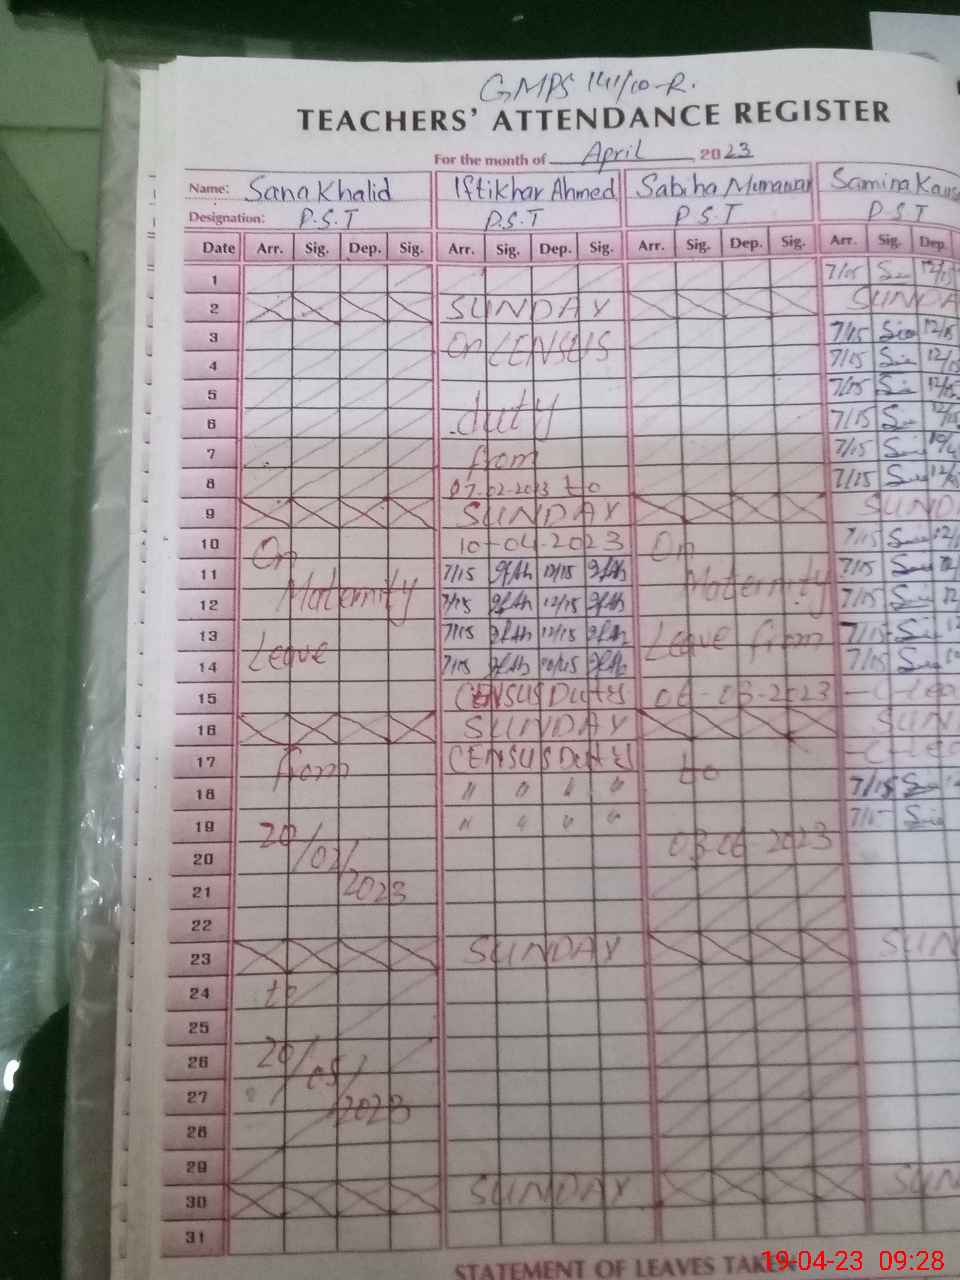 GMPS 141/10-R.
TEACHERS' ATTENDANCE REGISTER
For the month of April 2023
Name: Sana Khalid Iftikhar Ahmed Sabiha Munawar Samina Kaus
Designation: P.S.T P.S.T P.S.T P.S.T
Date Arr. Sig. Dep. Sig. Arr. Sig. Dep. Sig. Arr. Sig. Dep. Sig. Arr. Sig. Dep.
1 7/15 12/15
2 SUNDAY SUNDA
3 On CENSUS 7/15 12/15
4 7/15 12/15
5 duty 7/15 12/15
6 7/15 12/15
7 from 7/15
8 07-02-2023 to 7/15 12/15
9 SUNDAY SUND
10 On 10-04-2023 On 7/15 12/
11 Maternity 7/15 12/15 Maternity 7/15
12 7/15 12/15 7/15 12
13 Leave 7/15 12/15 Leave from 7/15 12
14 7/15 10/15 7/15
15 CENSUS Duty 06-03-2023 C-Lea
16 SUNDAY SUN
17 from CENSUS Duty to C-Lea
18 " " " " 7/15
19 20/02/2023 " " " " 7/15
20 03-06-2023
21
22
23 SUNDAY SUN
24 to
25
26 20/05/2023
27
28
29
30 SUNDAY SUN
31
STATEMENT OF LEAVES TAKEN
19-04-23 09:28